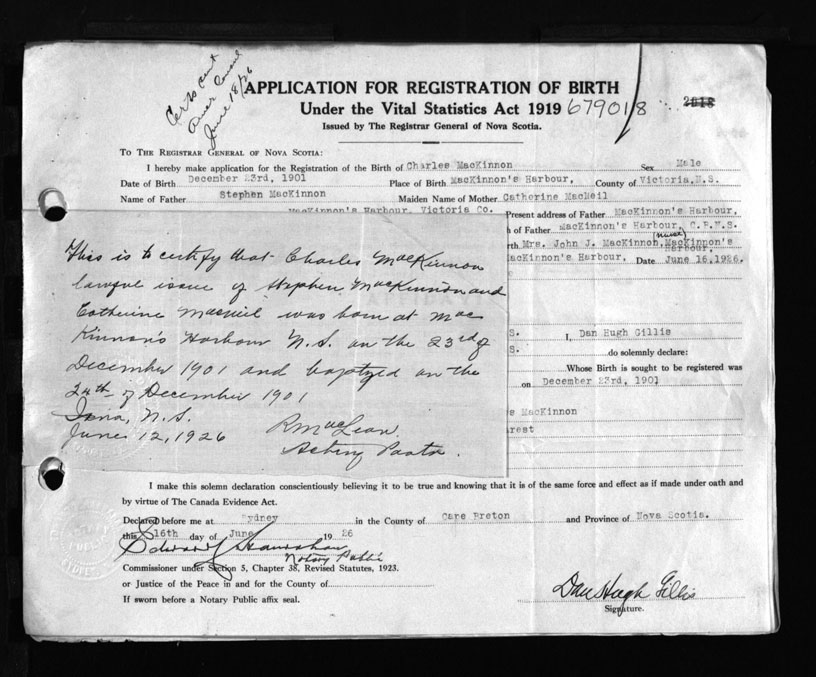 Certs sent
Amer Consul
June 18/26
APPLICATION FOR REGISTRATION OF BIRTH
Under the Vital Statistics Act 1919 679018
Issued by The Registrar General of Nova Scotia.
TO THE REGISTRAR GENERAL OF NOVA SCOTIA:
I hereby make application for the Registration of the Birth of Charles MacKinnon Sex Male
Date of Birth December 23rd, 1901 Place of Birth MacKinnon's Harbour, County of Victoria,N.S.
Name of Father Stephen MacKinnon Maiden Name of Mother Catherine MacNeil
MacKinnon's Harbour, Victoria Co. Present address of Father MacKinnon's Harbour,
h of Father MacKinnon's Harbour, C.B.N.S.
(nurse)
rth Mrs. John J. MacKinnon, MacKinnon's Harbour,
MacKinnon's Harbour, Date June 16,1926.
This is to certify that Charles MacKinnon
lawful issue of Stephen MacKinnon and
Catherine MacNeil was born at Mac
Kinnon's Harbour N.S. on the 23rd of
December 1901 and baptyzed on the
24th of December 1901
Iona, N.S.
June 12, 1926 R MacLean
Acting Pastor.
S. I, Dan Hugh Gillis
S. do solemnly declare:
Whose Birth is sought to be registered was
on December 23rd, 1901
s MacKinnon
rest
I make this solemn declaration conscientiously believing it to be true and knowing that it is of the same force and effect as if made under oath and
by virtue of The Canada Evidence Act.
Declared before me at Sydney in the County of Cape Breton and Province of Nova Scotia.
this 16th day of June 1926
Notary Public
Commissioner under Section 5, Chapter 38, Revised Statutes, 1923.
or Justice of the Peace in and for the County of
If sworn before a Notary Public affix seal.
Dan Hugh Gillis
Signature.